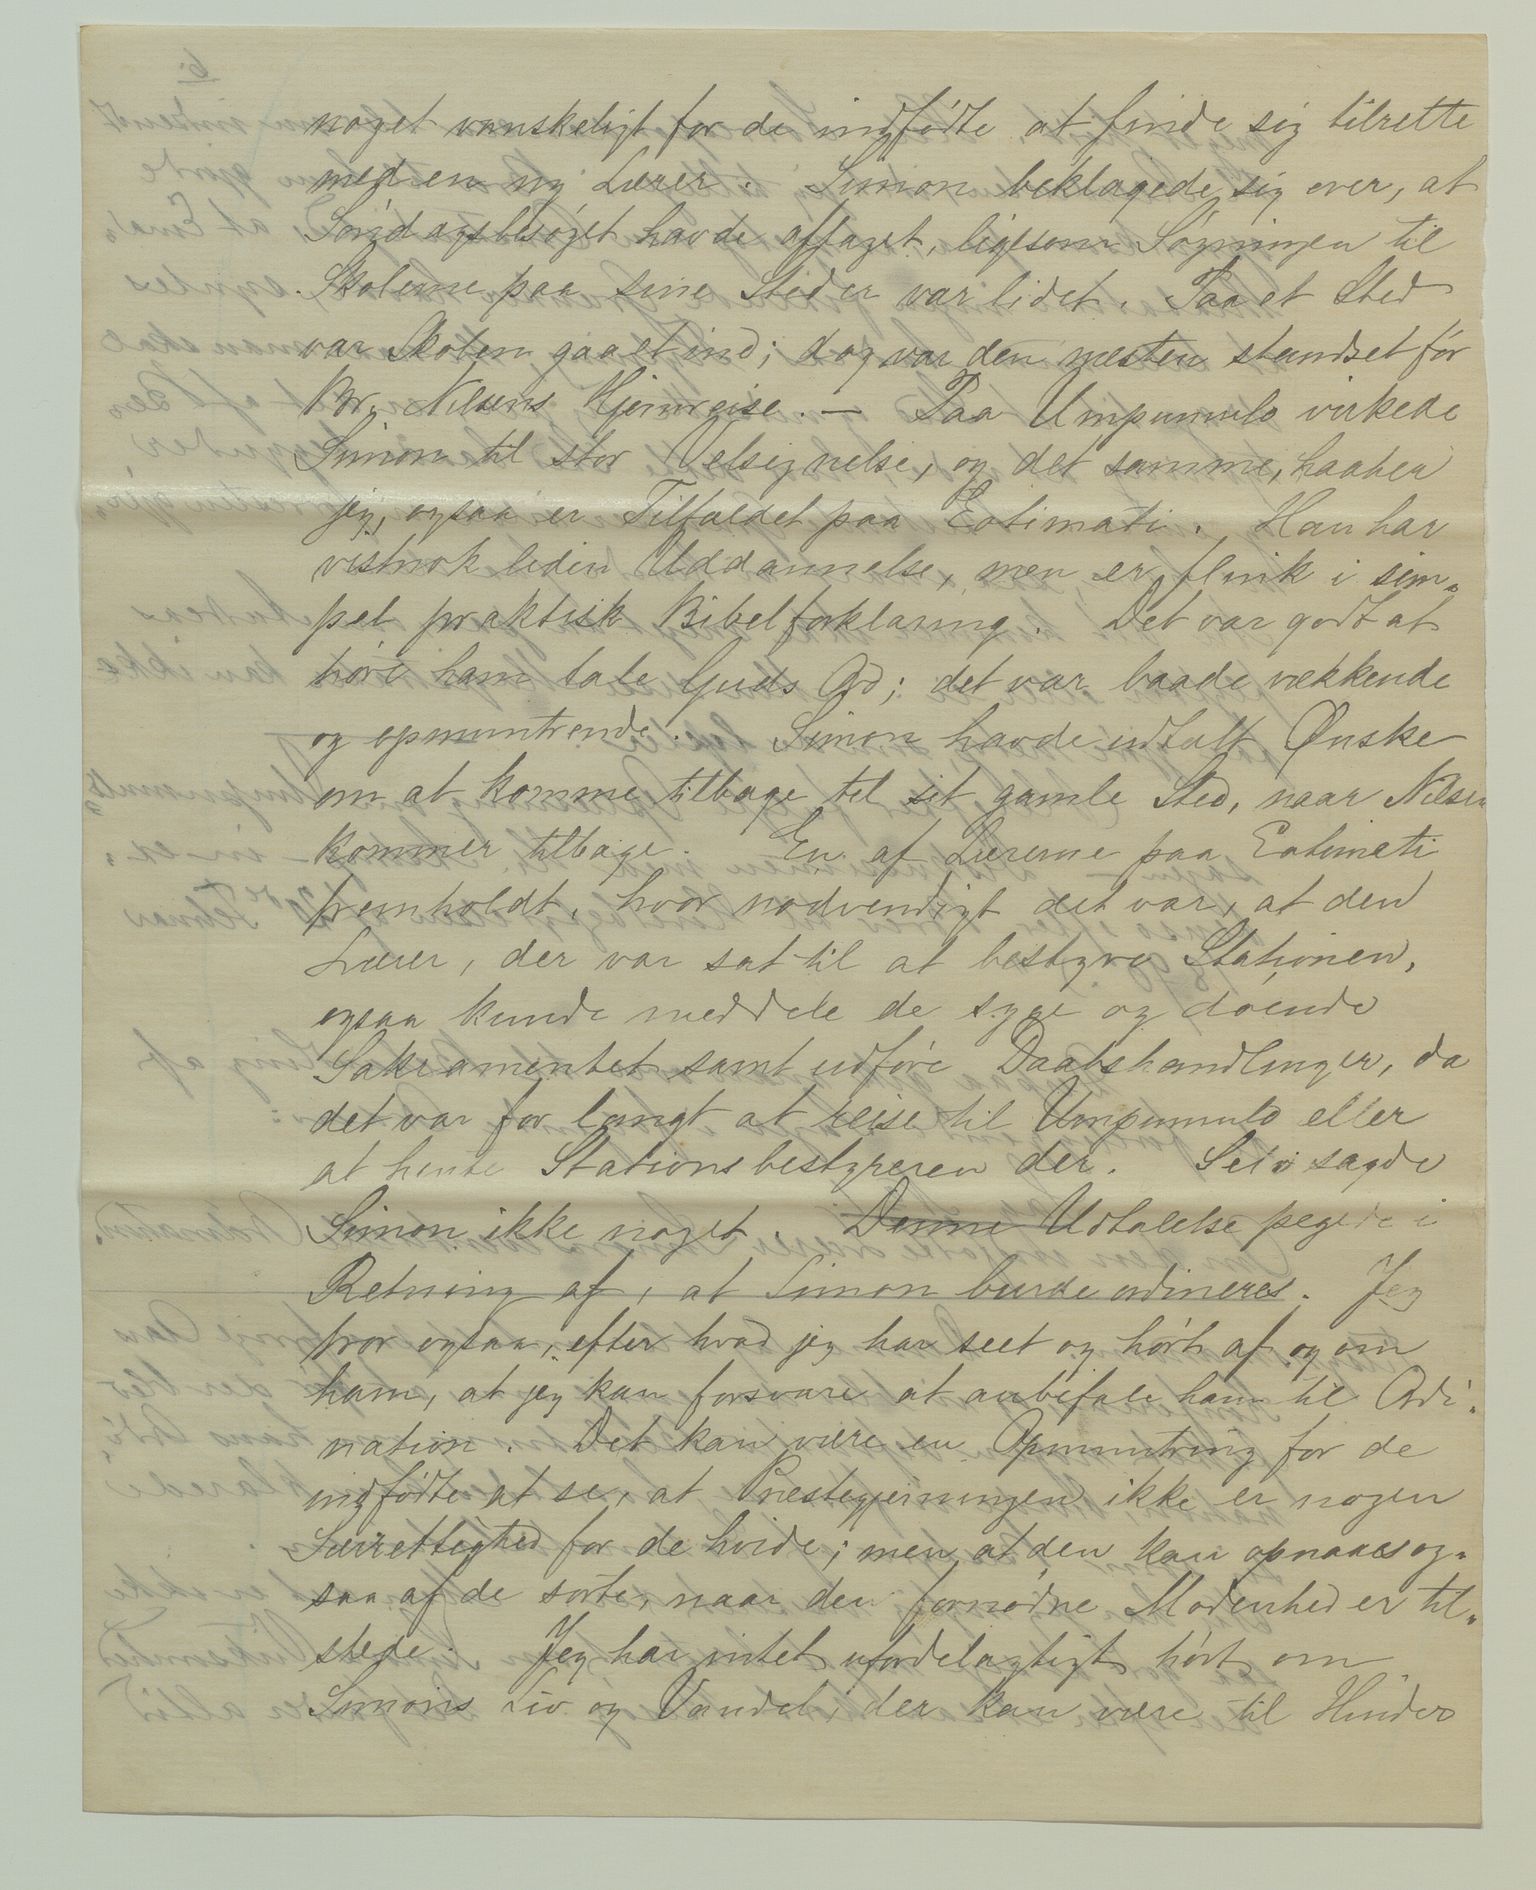 noget vanskeligt for de indfødte at finde sig tilrette
med en ny Lærer. Simon beklagede sig over, at
Søndagsbesøget havde aftaget, ligesom Søgningen til
Skolerne paa sine Steder var lidet. Paa et Sted
var Skolen gaaet ind; dog var den næsten standset før
Br. Nilsens Hjemreise. — Paa Umpumulo virkede
Simon til stor Velsignelse, og det samme, haaber
jeg, ogsaa er Tilfældet paa Eotimati. Han har
vistnok liden Uddannelse, men er flink i sim-
pel praktisk Bibelforklaring. Det var godt at
høre ham tale Guds Ord; det var baade vækkende
og opmuntrende. Simon havde udtalt Ønske
om at komme tilbage til sit gamle Sted, naar Nilsen
kommer tilbage. En af Lærerne paa Eotimati
fremholdt, hvor nødvendigt det var, at den
Lærer, der var sat til at bestyre Stationen,
ogsaa kunde meddele de syge og døende
Sakramentet samt udføre Daabshandlinger, da
det var for langt at reise til Umpumulo eller
at hente Stationsbestyreren der. Selv sagde
Simon ikke noget. Denne Udtalelse pegede i
Retning af, at Simon burde ordineres. Jeg
tror ogsaa, efter hvad jeg har seet og hørt af og om
ham, at jeg kan forsvare at anbefale ham til Ordi-
nation. Det kan være en Opmuntring for de
indfødte at se, at Prestegjerningen ikke er nogen
Særrettighed for de hvide; men at den kan opnaaes og-
saa af de sorte, naar den fornødne Modenhed er til-
stede. Jeg har intet ufordelagtigt hørt om
Simons Liv og Vandel, der kan være til Hinder